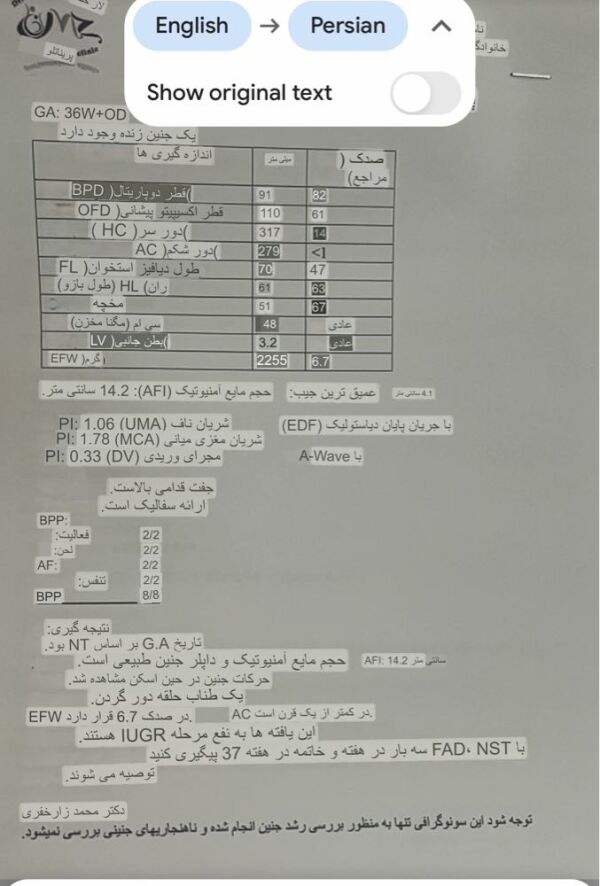 English → Persian
Show original text
clinic
پریناتلو
خانوادگ
GA: 36W+OD
یک جنین زنده وجود دارد
اندازه گیری ها | میلی متر | صدک ( مراجع)
)قطر دوپاریتال( BPD | 91 | 82
قطر اکسیپیتو پیشانی( OFD | 110 | 61
)دور سر( HC ) | 317 | 14
)دور شکم( AC | 279 | <1
طول دیافیز استخوان( FL | 70 | 47
ران) HL (طول بازو) | 61 | 63
مخچه | 51 | 67
سی ام (مگنا مخزن) | 48 | عادی
)بطن جانبی( LV | 3.2 | عادی
)گرم( EFW | 2255 | 6.7
حجم مایع آمنیوتیک (AFI): 14.2 سانتی متر. عمیق ترین جیب: 4.1 سانتی متر
شریان ناف (UMA) PI: 1.06 با جریان پایان دیاستولیک (EDF)
شریان مغزی میانی (MCA) PI: 1.78
مجرای وریدی (DV) PI: 0.33 با A-Wave
جفت قدامی بالاست.
ارائه سفالیک است.
BPP:
فعالیت: 2/2
لحن: 2/2
AF: 2/2
تنفس: 2/2
BPP 8/8
نتیجه گیری:
تاریخ G.A بر اساس NT بود.
حجم مایع آمنیوتیک و داپلر جنین طبیعی است. AFI: 14.2 سانتی متر
حرکات جنین در حین اسکن مشاهده شد.
یک طناب حلقه دور گردن.
EFW در صدک 6.7 قرار دارد. AC در کمتر از یک قرن است.
این یافته ها به نفع مرحله IUGR هستند.
با FAD، NST سه بار در هفته و خاتمه در هفته 37 پیگیری کنید
توصیه می شوند.
دکتر محمد زارخفری
توجه شود این سونوگرافی تنها به منظور بررسی رشد جنین انجام شده و ناهنجاریهای جنینی بررسی نمیشود.